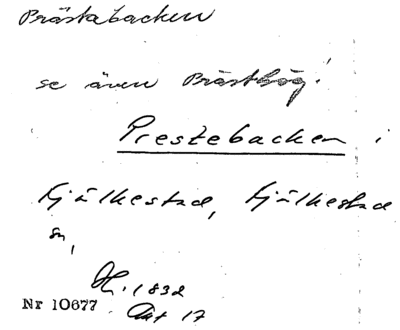 Prästabacken
se även Prästhög!
Prestebacken i
Fjälkestad, Fjälkestad
sn,
H. 1832
Nr 10677 Akt 17